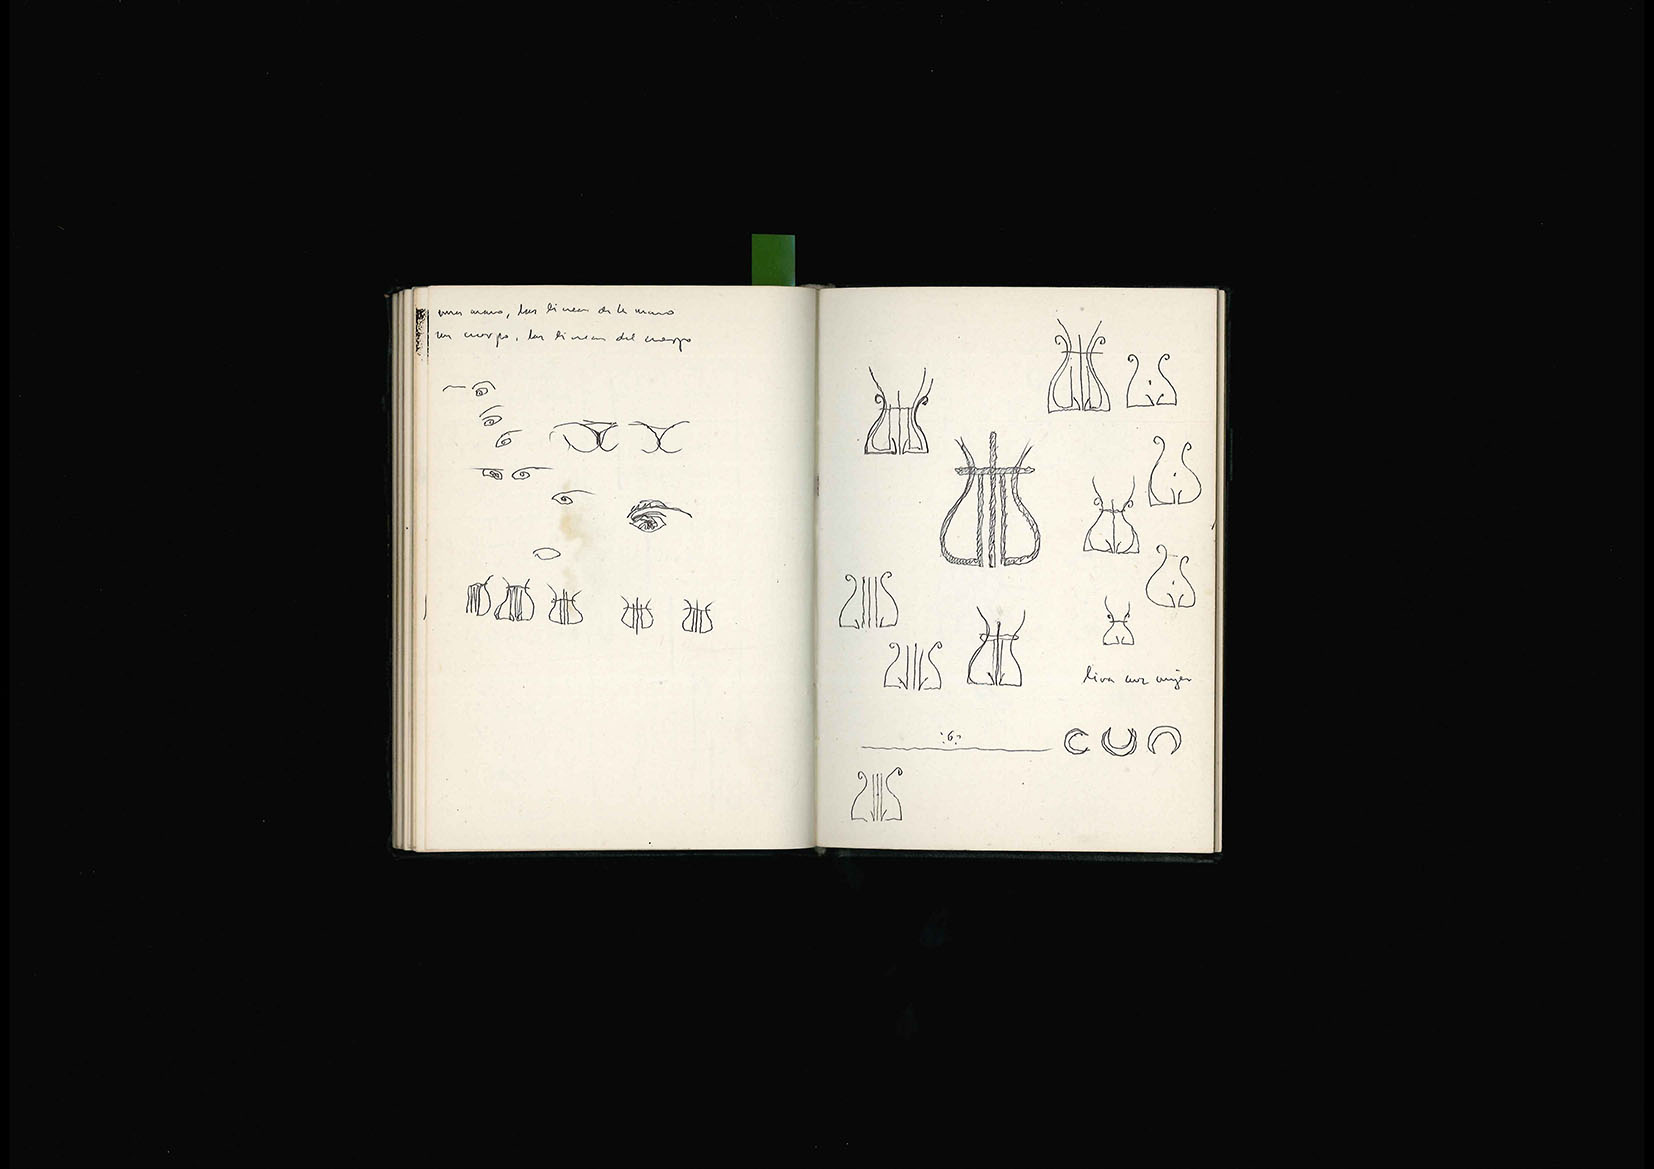 una mano, las lineas de la mano
un cuerpo, las lineas del cuerpo
lira mujer
6